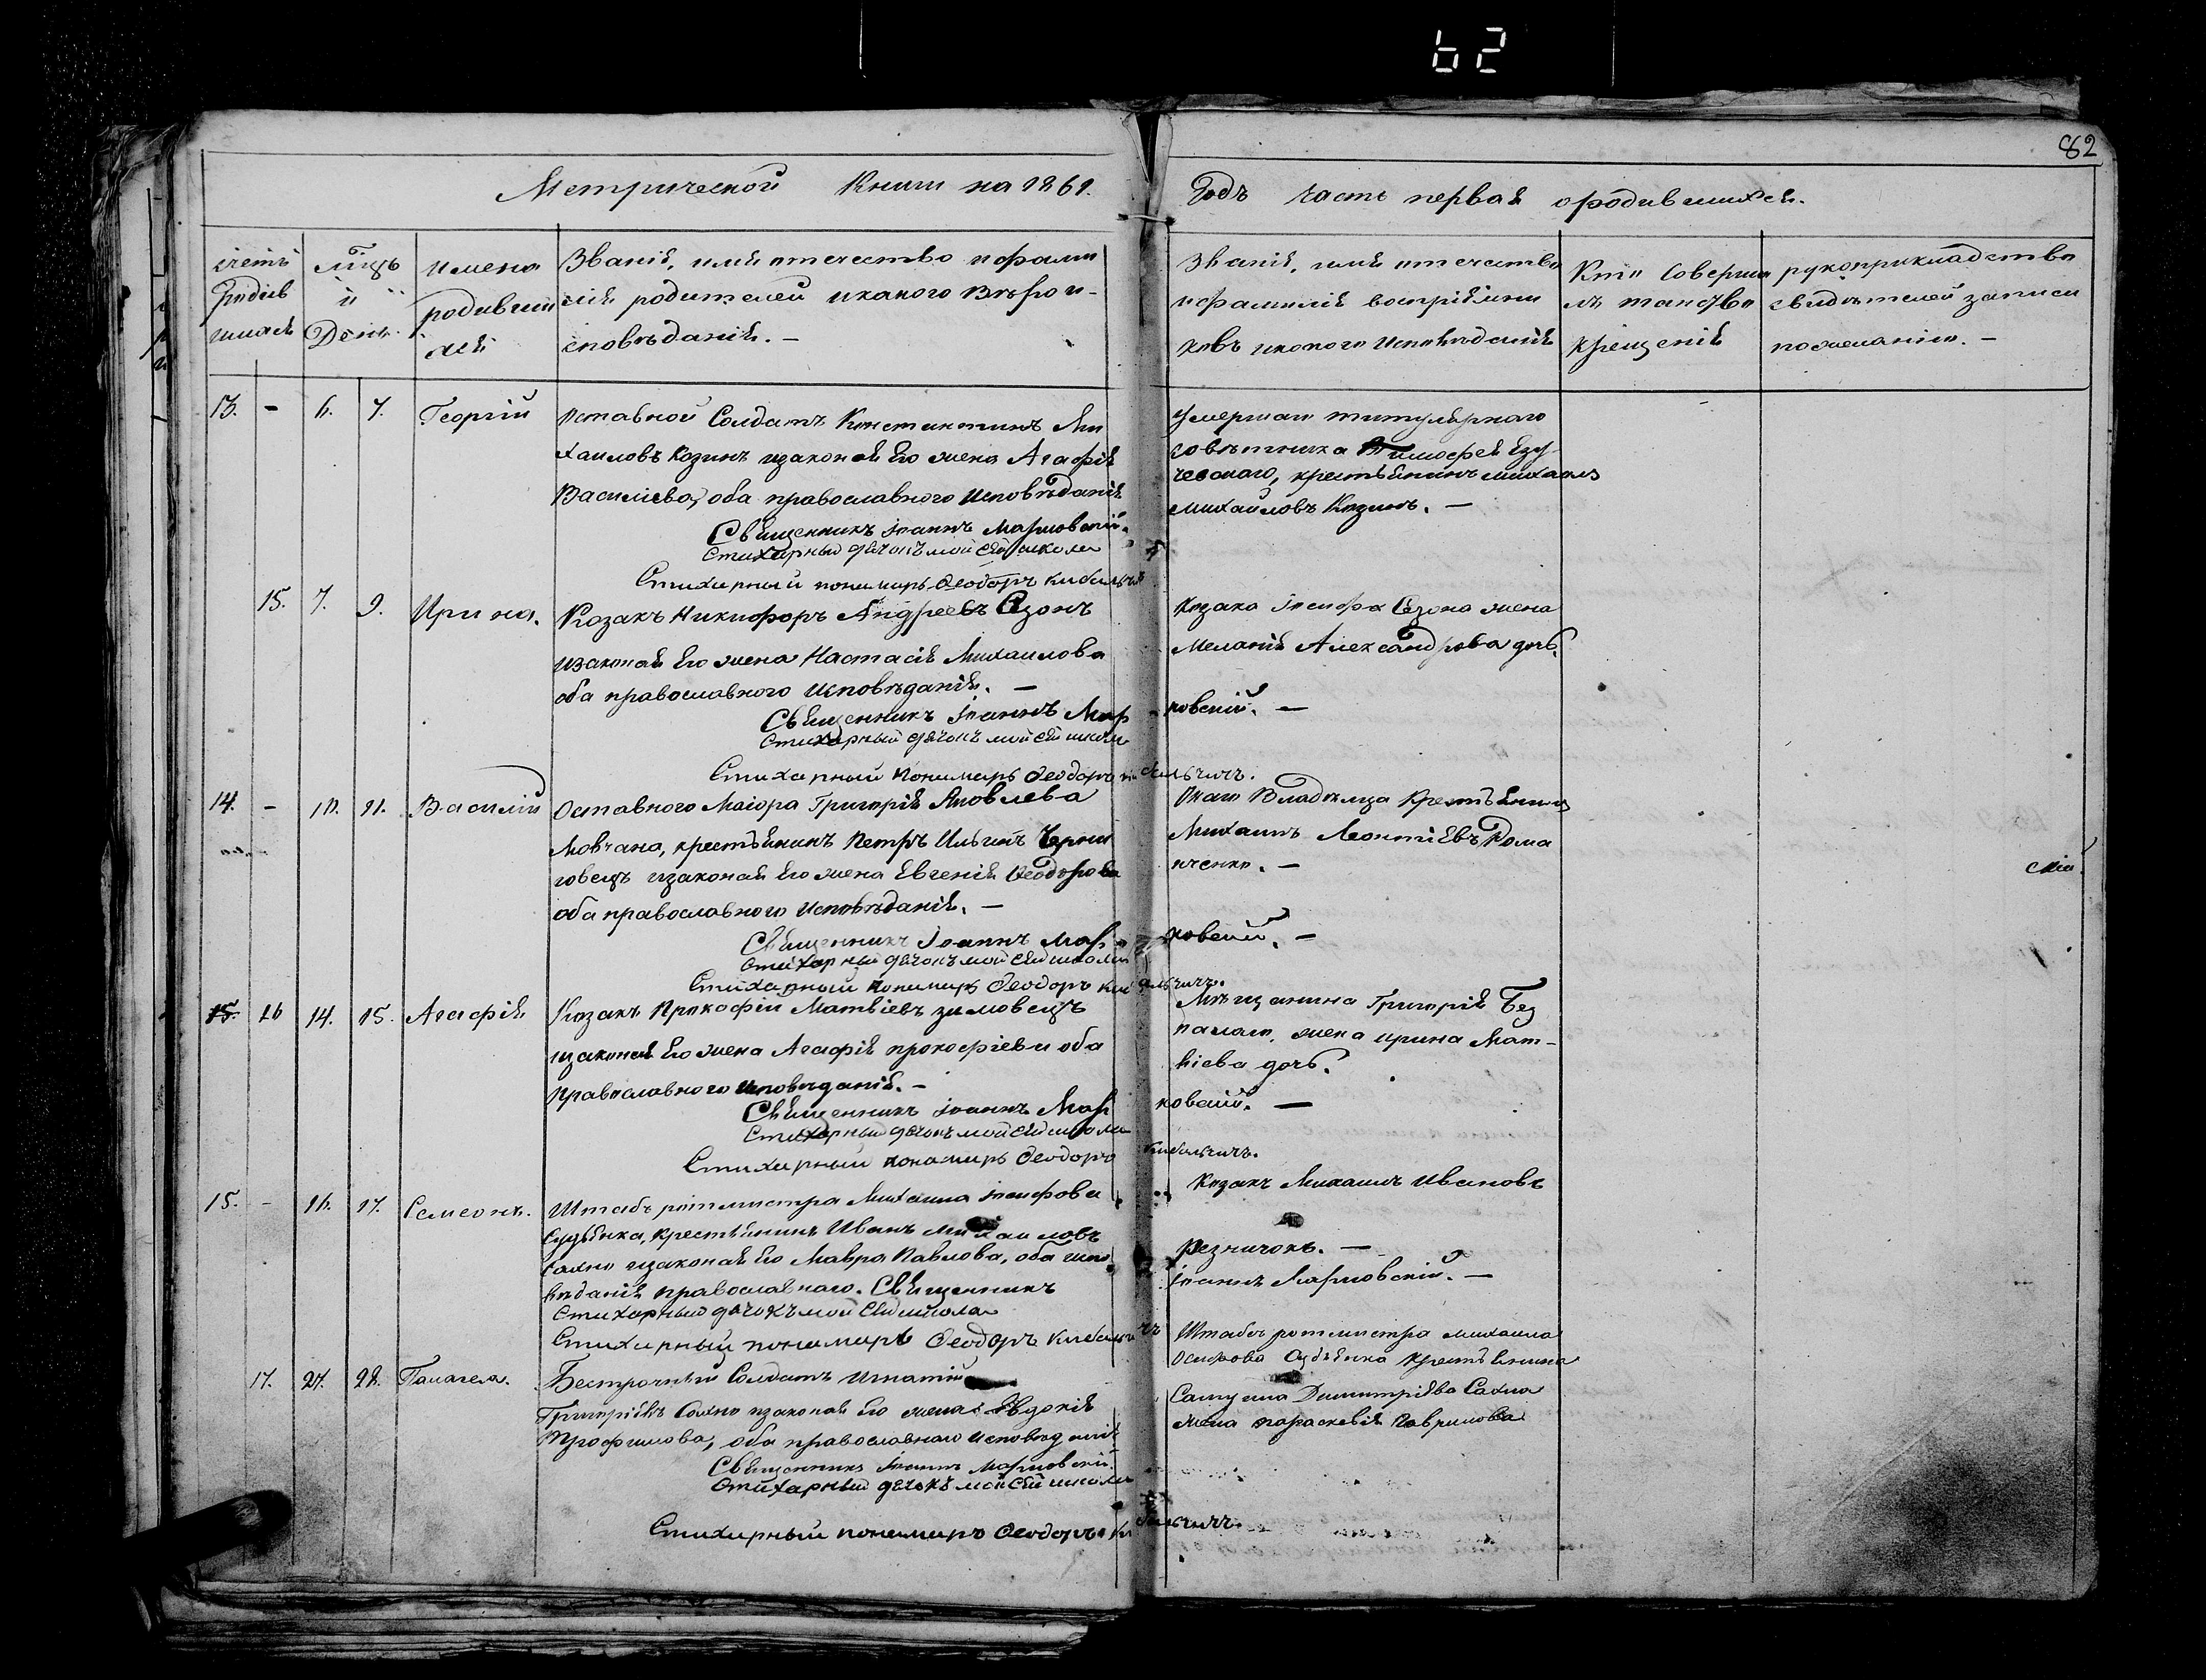 62
82
Метрической Книги на 1861.
Годъ часть первая ородившихся.
счетъ родив шихся
Мцъ й День
имена родивши хся
Званіе, имя отечество и фами
лія родителей и какого веро и-
споведанія. —
Званіе, имя отечество
и фамилія воспріемни
ковъ и какого исповеданія
Кто соверша
лъ таинство
крещенія
рукоприкладство
свидетелей записи
по желанію. —
13. - 6. 7. Георгій
Отставной Солдатъ Константинъ Ми
хаиловъ Козинъ изаконая Его жена Агафія
Василіева, оба православного Исповѣданія
Священникъ Іоаннъ Марковскій.
Стихарный дячокъ мойсей школа
Стихарный пономарь Ѳеодоръ Кибальчичъ
Умершаго титулярного
советника Тимофея
крестьянинъ михаилъ
михаиловъ Козинъ. —
15. 7. 9. Ирина.
Козакъ Никифоръ Андреевъ Сазонъ
изаконая Его жена Настасія Михаилова
оба православного Исповѣданія. —
Священникъ Іоаннъ Марковскій. —
Стихарный дячокъ мойсей школа
Стихарный пономарь Ѳеодоръ Кибальчичъ.
Козака Іосифа Сазона жена
Меланія Александрова дочь.
14. - 10. 11. Василій
Оставного Маіора Григорія Яковлева
Мовчана, крестьянинъ Петръ Ильинъ Черни
говецъ изаконая Его жена Евгенія Ѳеодорова
оба православного Исповѣданія. —
Священникъ Іоаннъ Марковскій. —
Стихарный дячокъ мойсей школа
Стихарный пономарь Ѳеодоръ Кибальчичъ.
Оного Владельца Крестьянинъ
Михаилъ Леонтіевъ Рома
нченко. —
скій.
15. 16 14. 15. Агафія
Козакъ Прокофій Матвіевъ зимовецъ
изаконая Его жена Агафія прокофіева оба
православного исповѣданія. —
Священникъ Іоаннъ Марковскій. —
Стихарный дячокъ мойсей школа
Стихарный пономарь Ѳеодоръ Кибальчичъ.
Мѣщанина Григорія Без
палаго, жена ирина Мат-
віева дочь.
15. - 16. 17. Семеонъ.
Штабъ ротмистра Михаила Іосифова
Судьенка, крестьянинъ Иванъ Михаиловъ
Сахно изаконая Его Мавра Павлова, оба испо
веданія православнаго. Священникъ Іоаннъ Марковскій. —
Стихарный дячокъ мойсей школа
Стихарный пономарь Ѳеодоръ Кибальчичъ
Козакъ Михаилъ Ивановъ
Резничокъ. —
17. 27. 28. Палагея.
Бестрочный Солдатъ Игнатій
Григоріевъ Сахно изаконая Его жена Явдокія
Трофимова, оба православнаго исповеданія
Священникъ Іоаннъ Марковскій.
Стихарный дячокъ мойсей школа
Стихарный пономаръ Ѳеодоръ Кибальчичъ.
Штабъ ротмистра михаила
Осифова Судьенка Крестьянина
Самуила Димитріева Сахна
жена параскевія Гаврилова